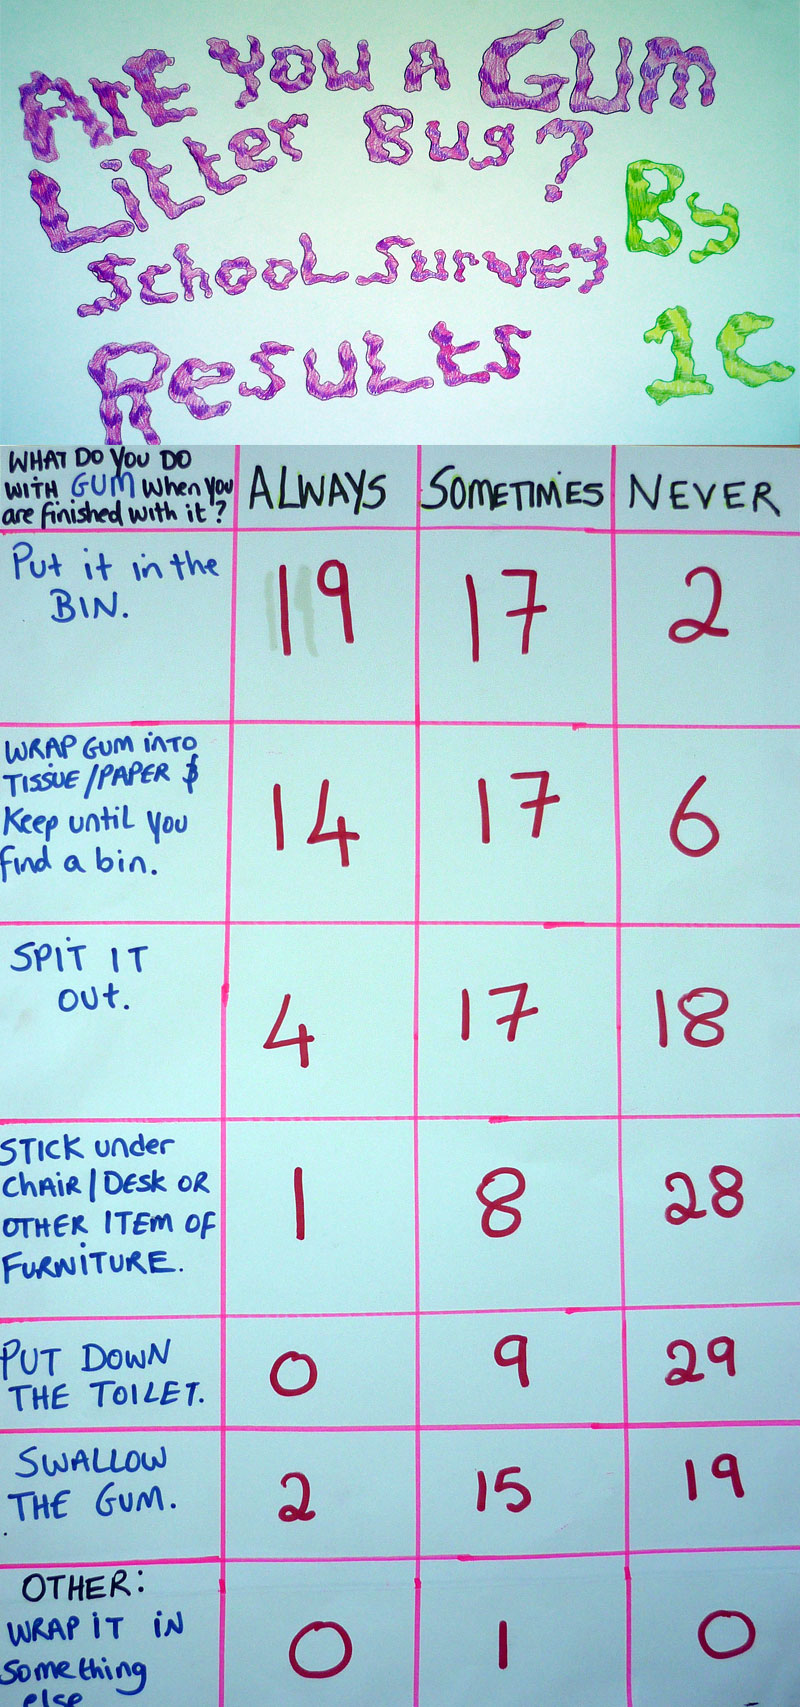 Are You A Gum
Litter Bug?
School Survey
Results
By
1C
WHAT DO YOU DO
WITH GUM When you
are finished with it?
ALWAYS
SOMETIMES
NEVER
Put it in the
BIN.
19
17
2
WRAP GUM INTO
TISSUE/PAPER &
Keep until you
find a bin.
14
17
6
SPIT IT
out.
4
17
18
STICK under
CHAIR/DESK OR
OTHER ITEM OF
FURNITURE.
1
8
28
PUT DOWN
THE TOILET.
0
9
29
SWALLOW
THE GUM.
2
15
19
OTHER:
WRAP IT IN
Something
else
0
1
0